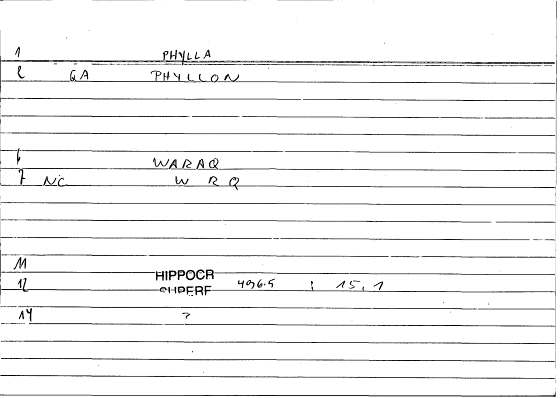 1 PHYLLA
2 GA PHYLLON
6 WARAQ
7 NC W R Q
11
12 HIPPOCR
SUPERF 496.5 : 15,1
14 ?